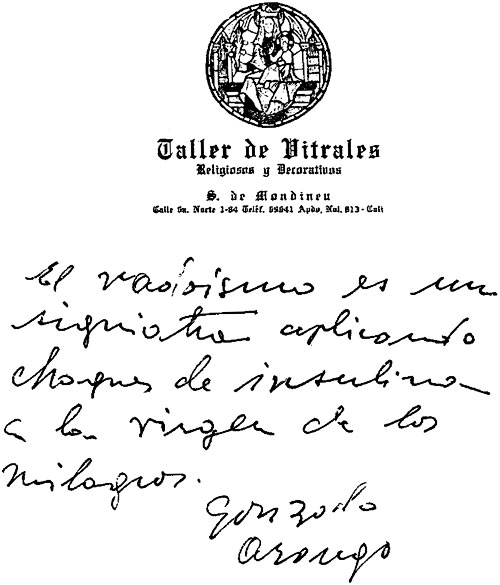 Taller de Vitrales
Religiosos y Decorativos
S. de Mondineu
Calle 9a. Norte 1-84 Teléf. 69941 Apdo. Nal. 813 - Cali
El nadaísmo es un
siquiatra aplicando
choques de insulina
a la virgen de los
milagros.
Gonzalo
Arango